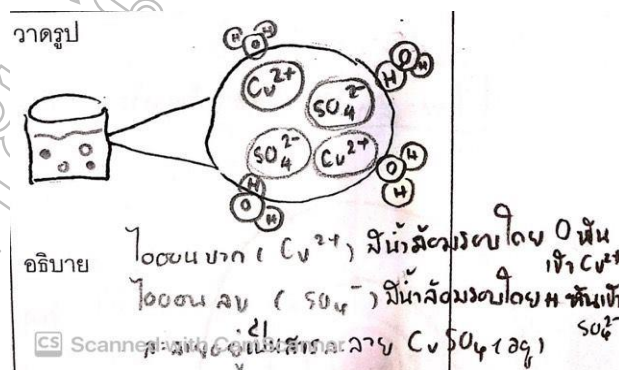 วาดรูป
H O H
Cu²⁺
SO₄²⁻
H O H
SO₄²⁻
Cu²⁺
H O H
O H H
อธิบาย
ไอออนบวก ( Cu²⁺ ) มีน้ำล้อมรอบโดย O หัน
เข้า Cu²⁺
ไอออนลบ ( SO₄⁻ ) มีน้ำล้อมรอบโดย H หันเข้า
SO₄²⁻
อยู่เป็นสารละลาย CuSO₄ (aq)
CS Scanned with CamScanner